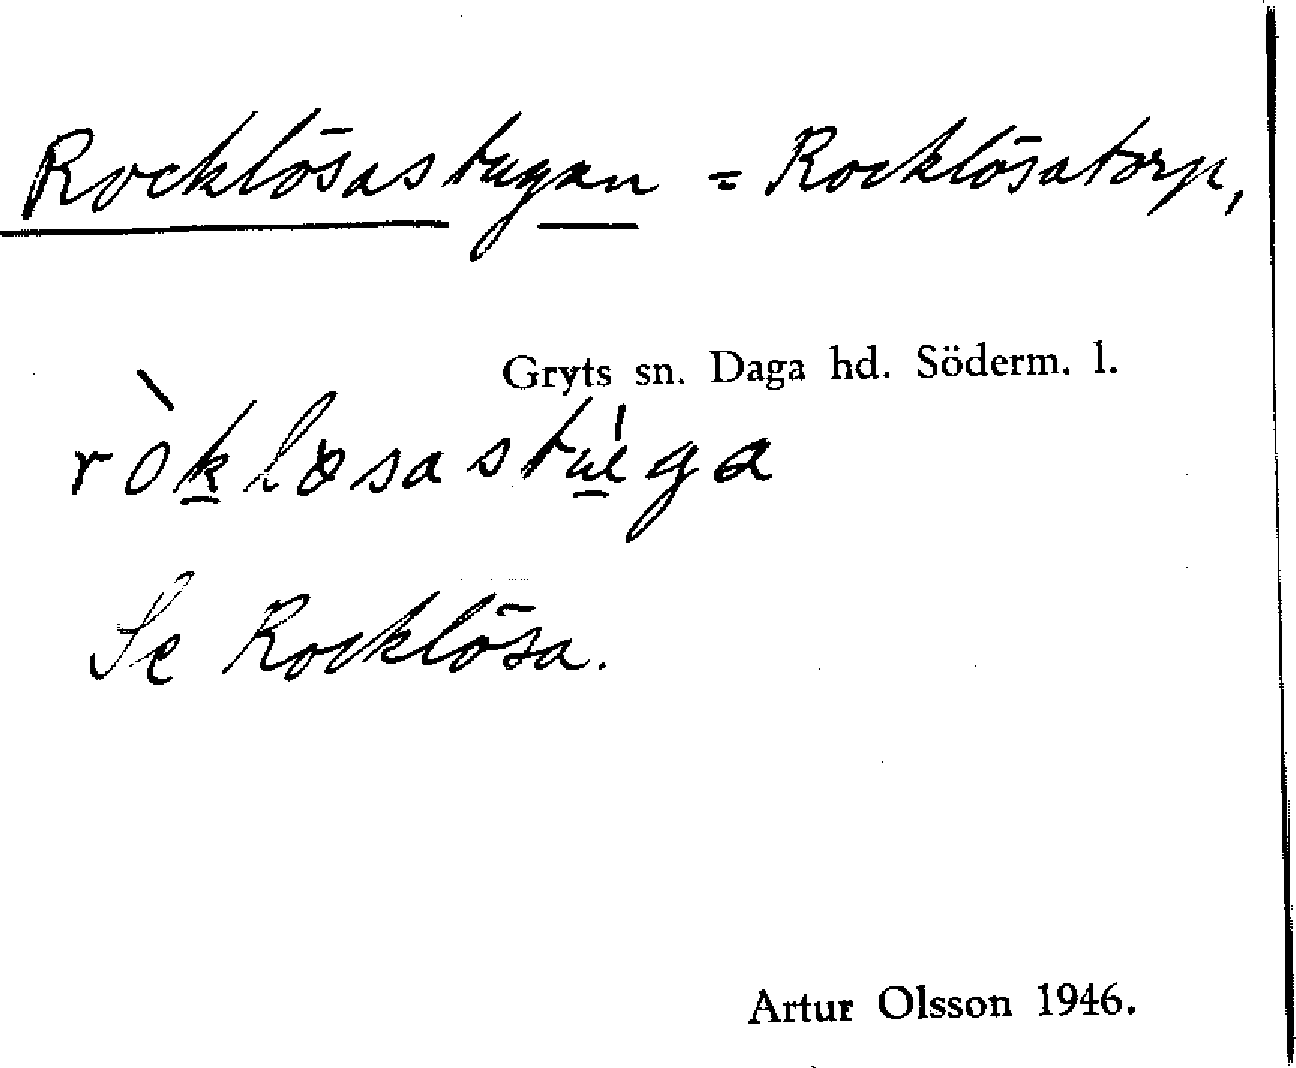 Rocklösastugan = Rocklösatorp,
Gryts sn. Daga hd. Söderm. l.
ròk̲løsastú̲ga
Se Rocklösa.
Artur Olsson 1946.